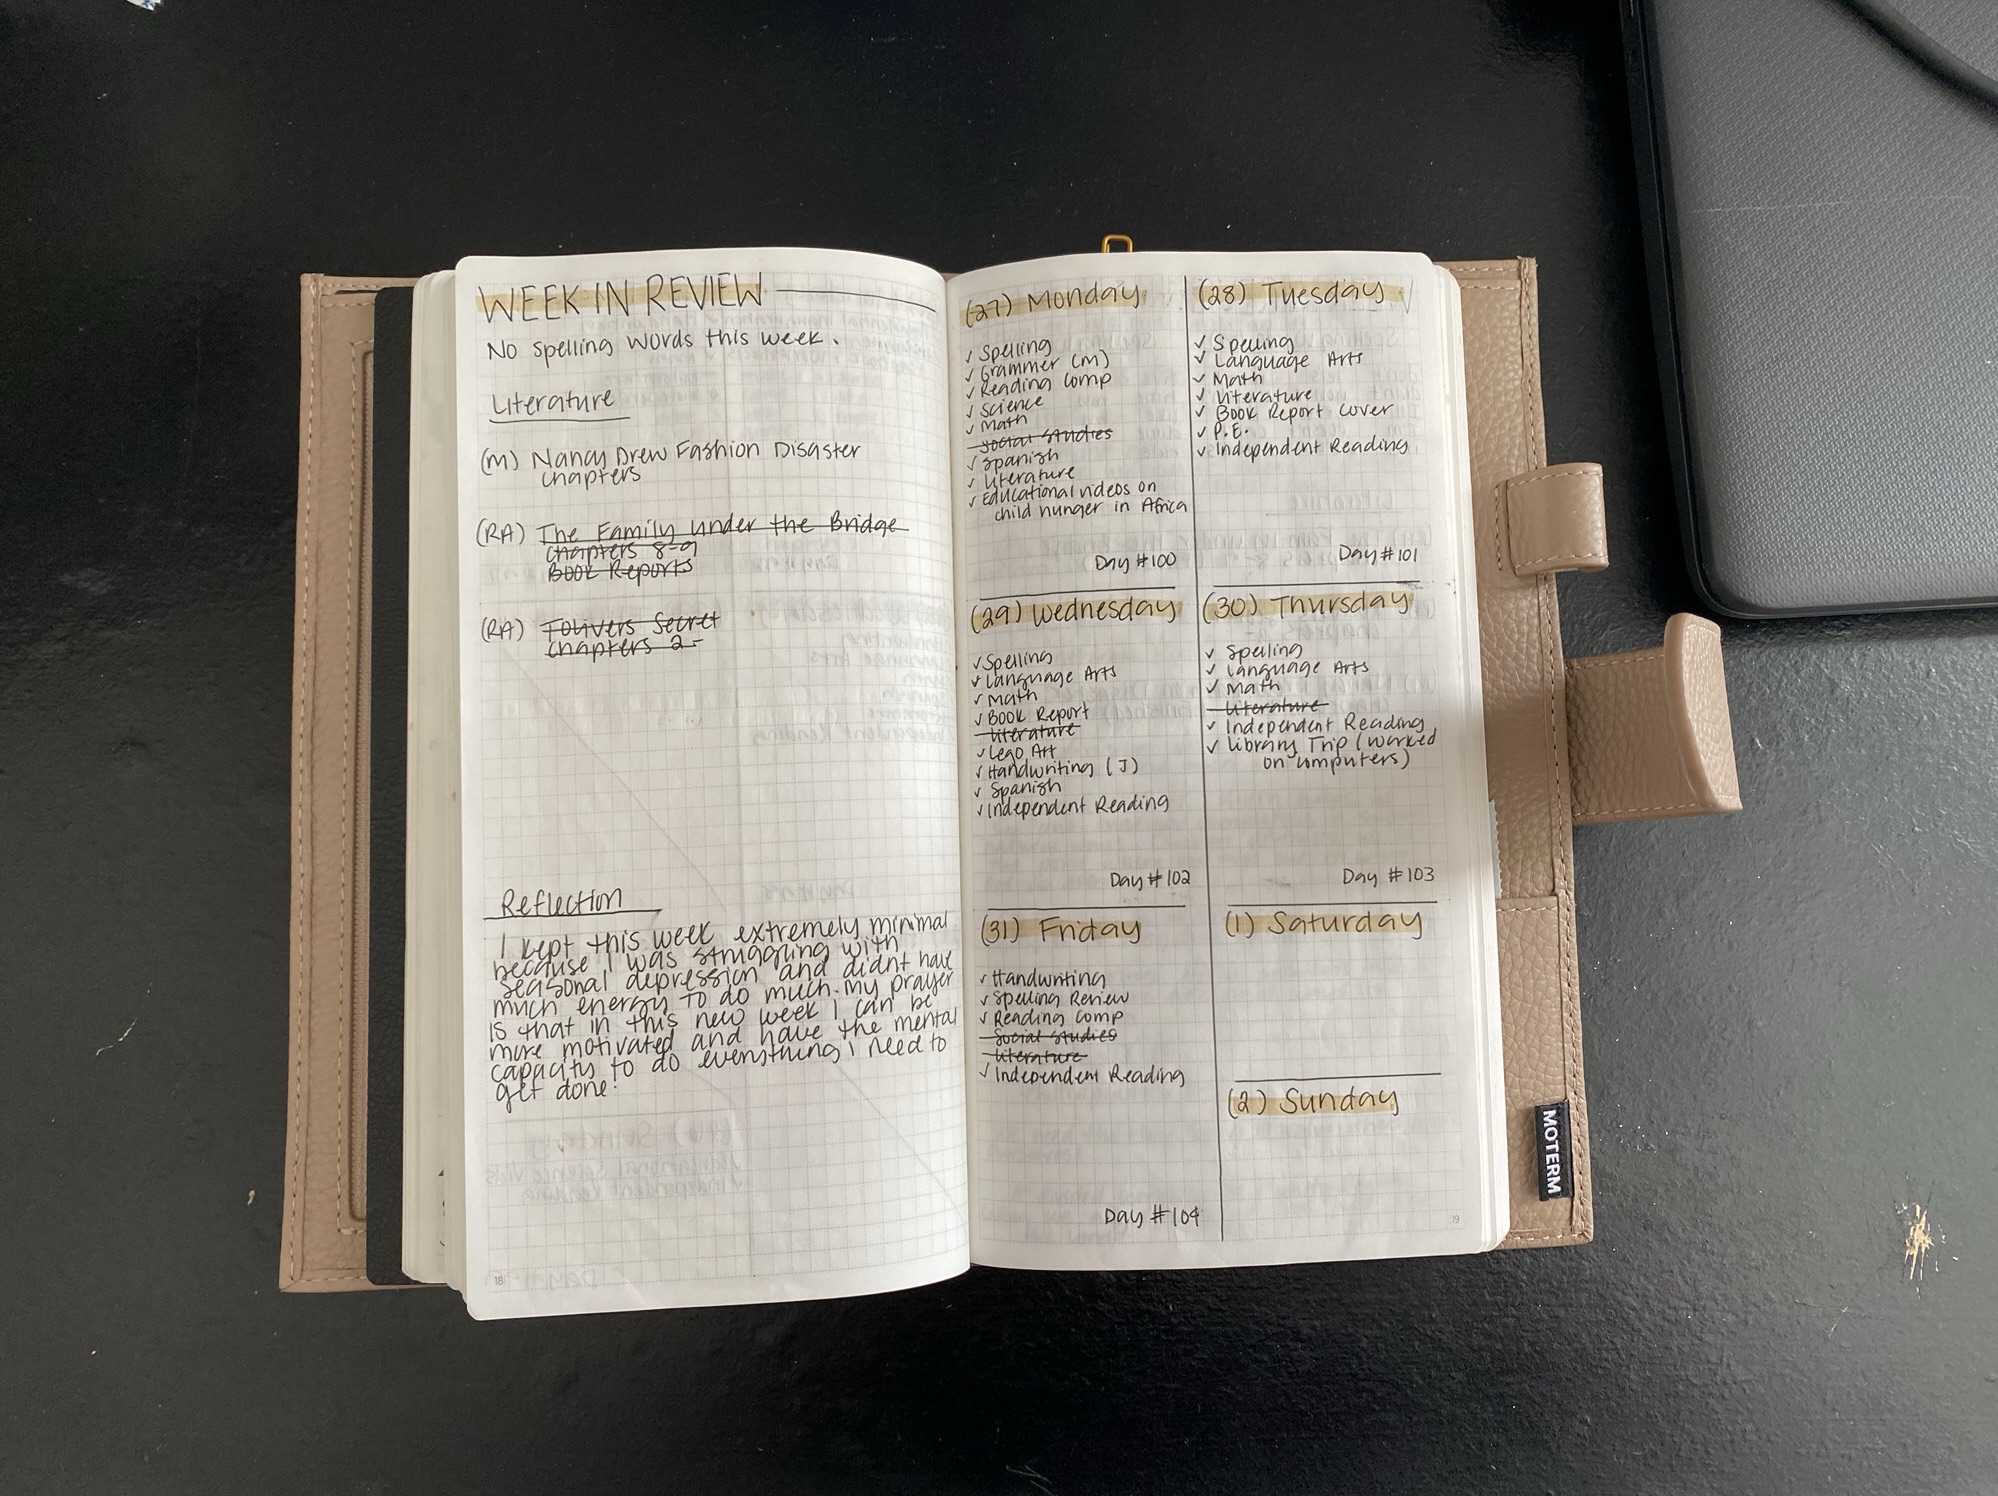 WEEK IN REVIEW
No spelling words this week.
Literature
(M) Nancy Drew Fashion Disaster
chapters
(RA) The Family Under the Bridge
chapters 8-9
Book Reports
(RA) Tolivers Secret
chapters 2-
Reflection
I kept this week extremely minimal
because I was struggling with
seasonal depression and didnt have
much energy to do much. My prayer
is that in this new week I can be
more motivated and have the mental
capacity to do everything I need to
get done!
18
(27) Monday
✓ Spelling
✓ Grammer (M)
✓ Reading Comp
✓ Science
✓ Math
Social Studies
✓ Spanish
✓ Literature
✓ Educational videos on
child hunger in Africa
Day #100
(28) Tuesday
✓ Spelling
✓ Language Arts
✓ Math
✓ Literature
✓ Book Report Cover
✓ P.E.
✓ Independent Reading
Day #101
(29) Wednesday
✓ Spelling
✓ Language Arts
✓ Math
✓ Book Report
Literature
✓ Lego Art
✓ Handwriting (J)
✓ Spanish
✓ Independent Reading
Day #102
(30) Thursday
✓ Spelling
✓ Language Arts
✓ Math
Literature
✓ Independent Reading
✓ Library Trip (worked
on computers)
Day #103
(31) Friday
✓ Handwriting
✓ Spelling Review
✓ Reading Comp
Social Studies
Literature
✓ Independent Reading
Day #104
(1) Saturday
(2) Sunday
19
MOTERM